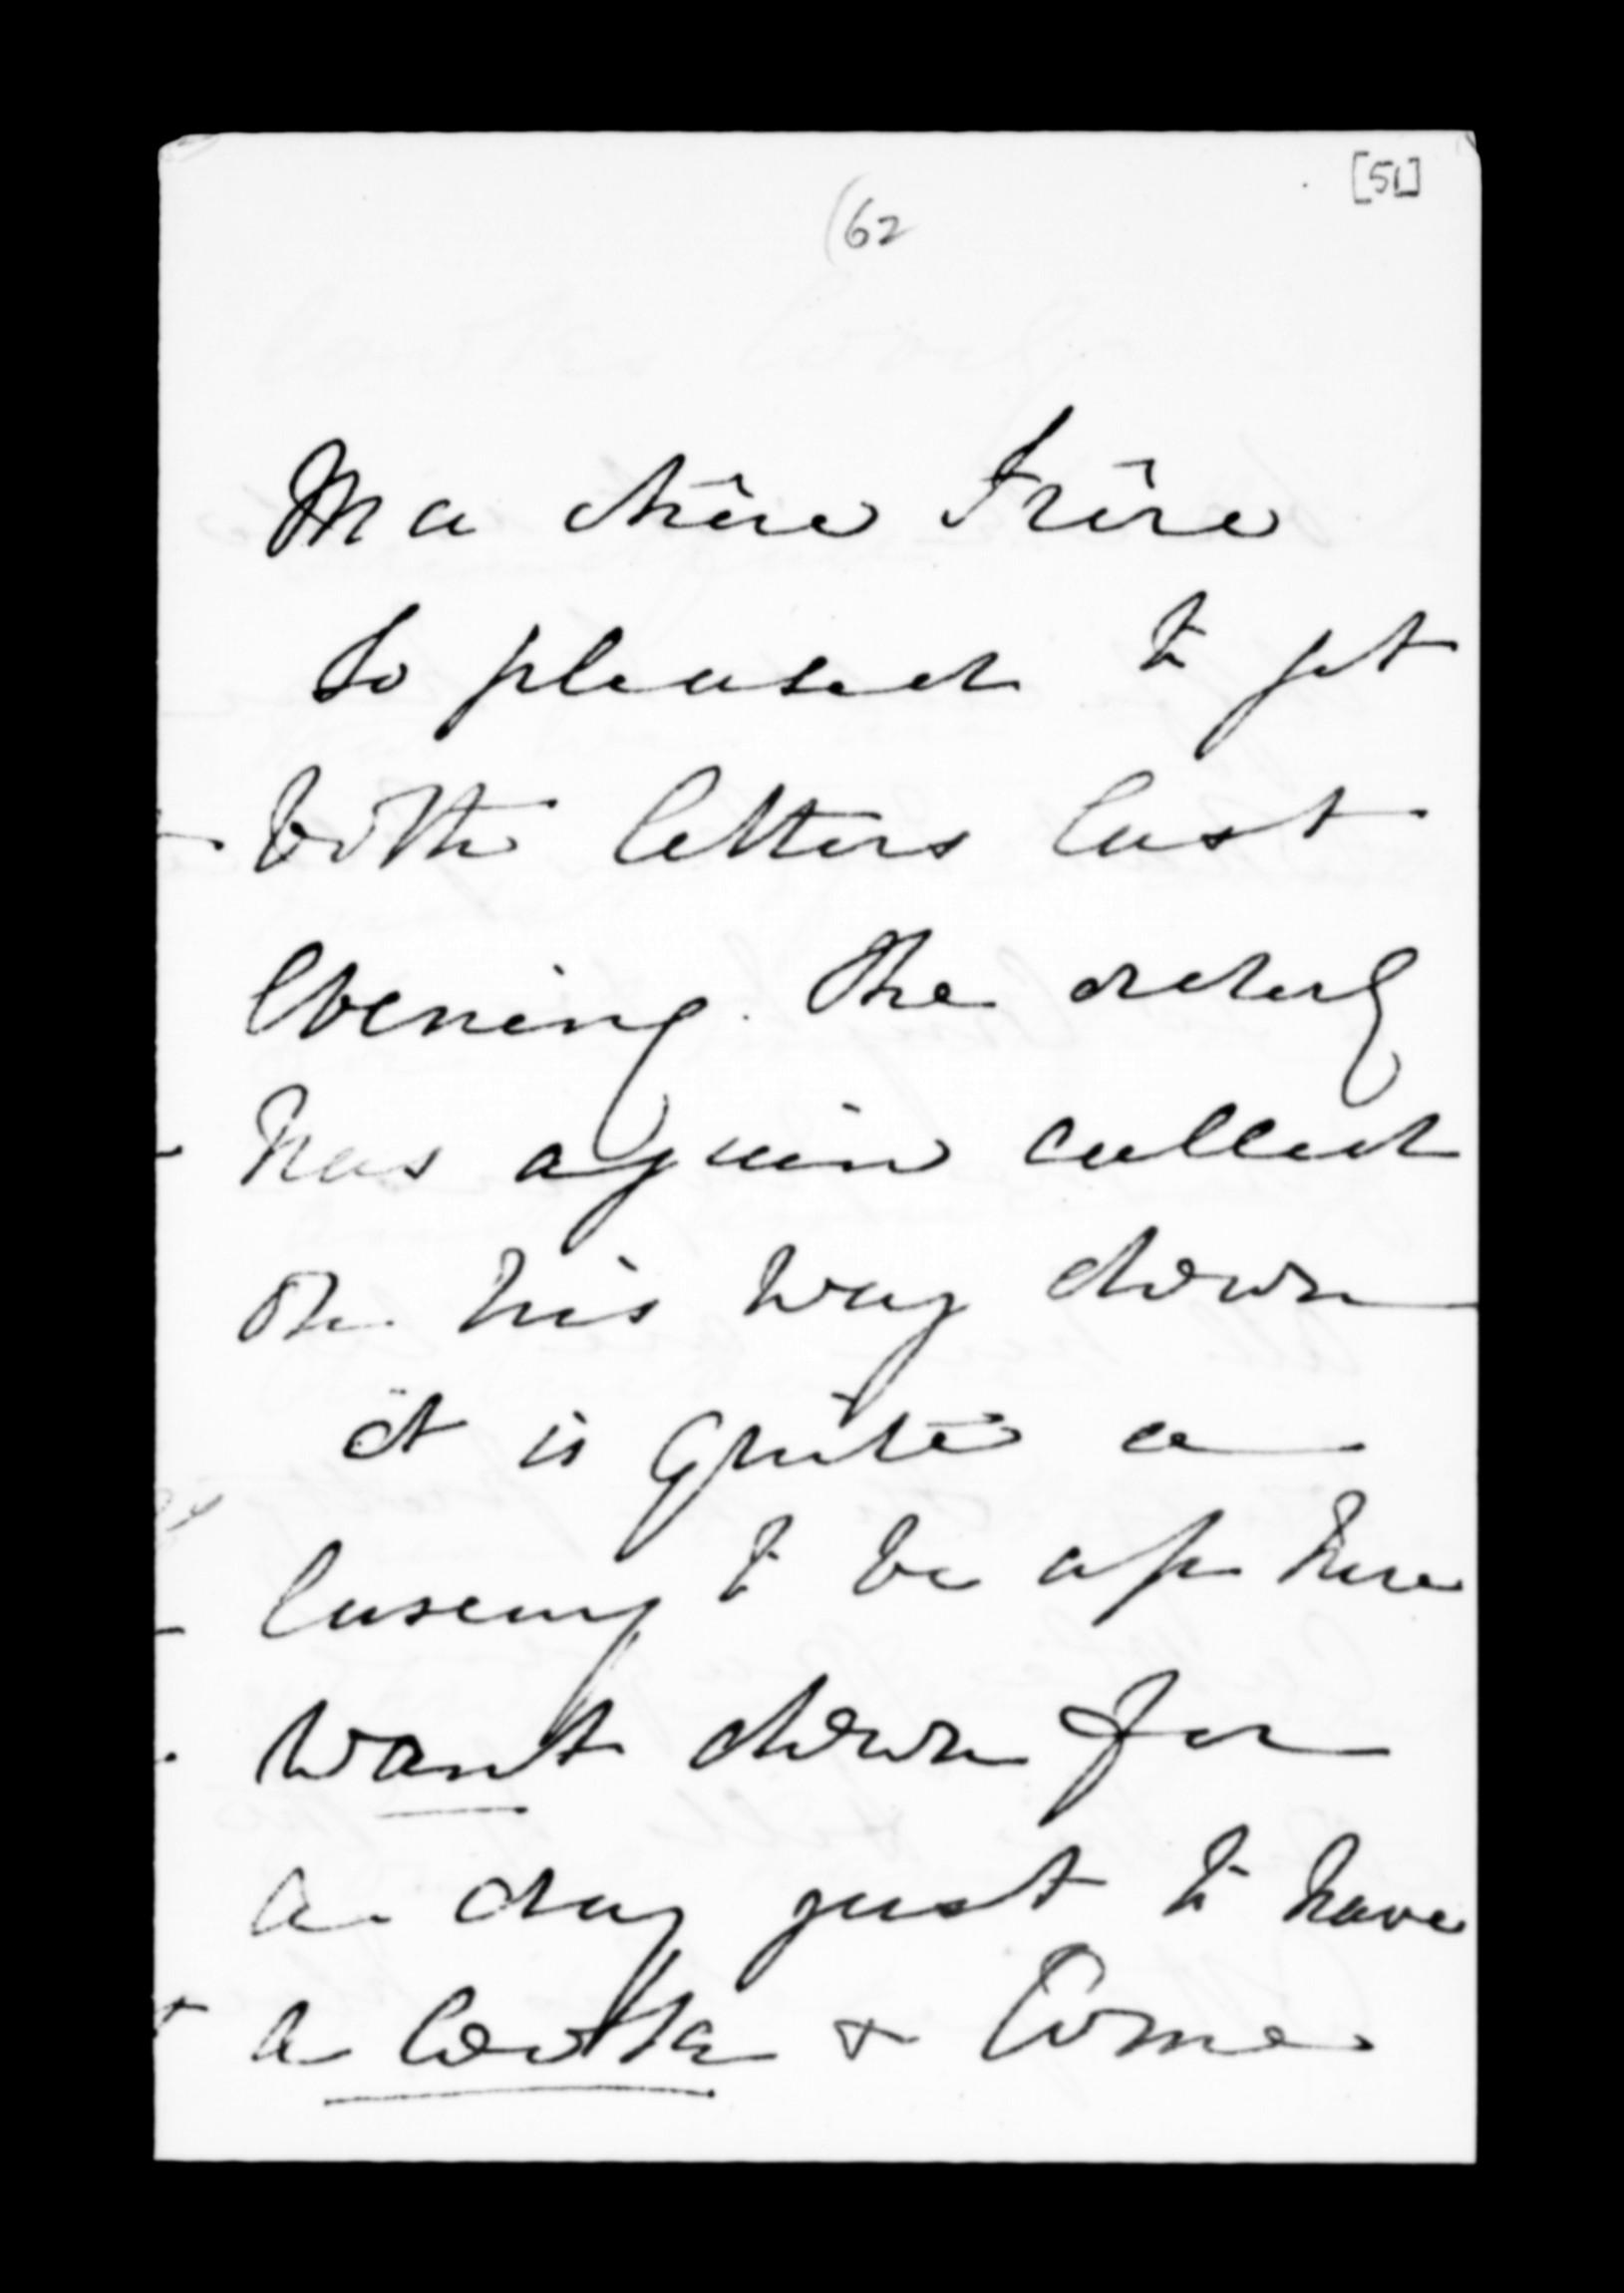 [51]
(62
Ma chère Frère
So pleased to get
both letters last
Evening. The
has again called
on his way down
it is quite a
to be up here
want down for
a day just to have
a & Come